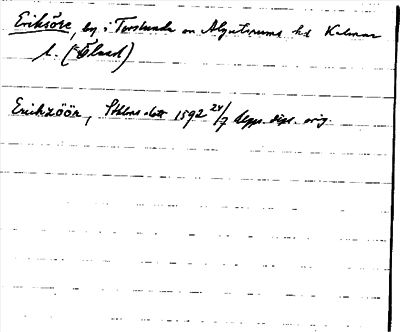 Eriksöre, by i Torslunda sn Algutsrums hd Kalmar
l. (Öland)
Erikzöör, Sthlms slott 1592 24/7 dipl. orig.